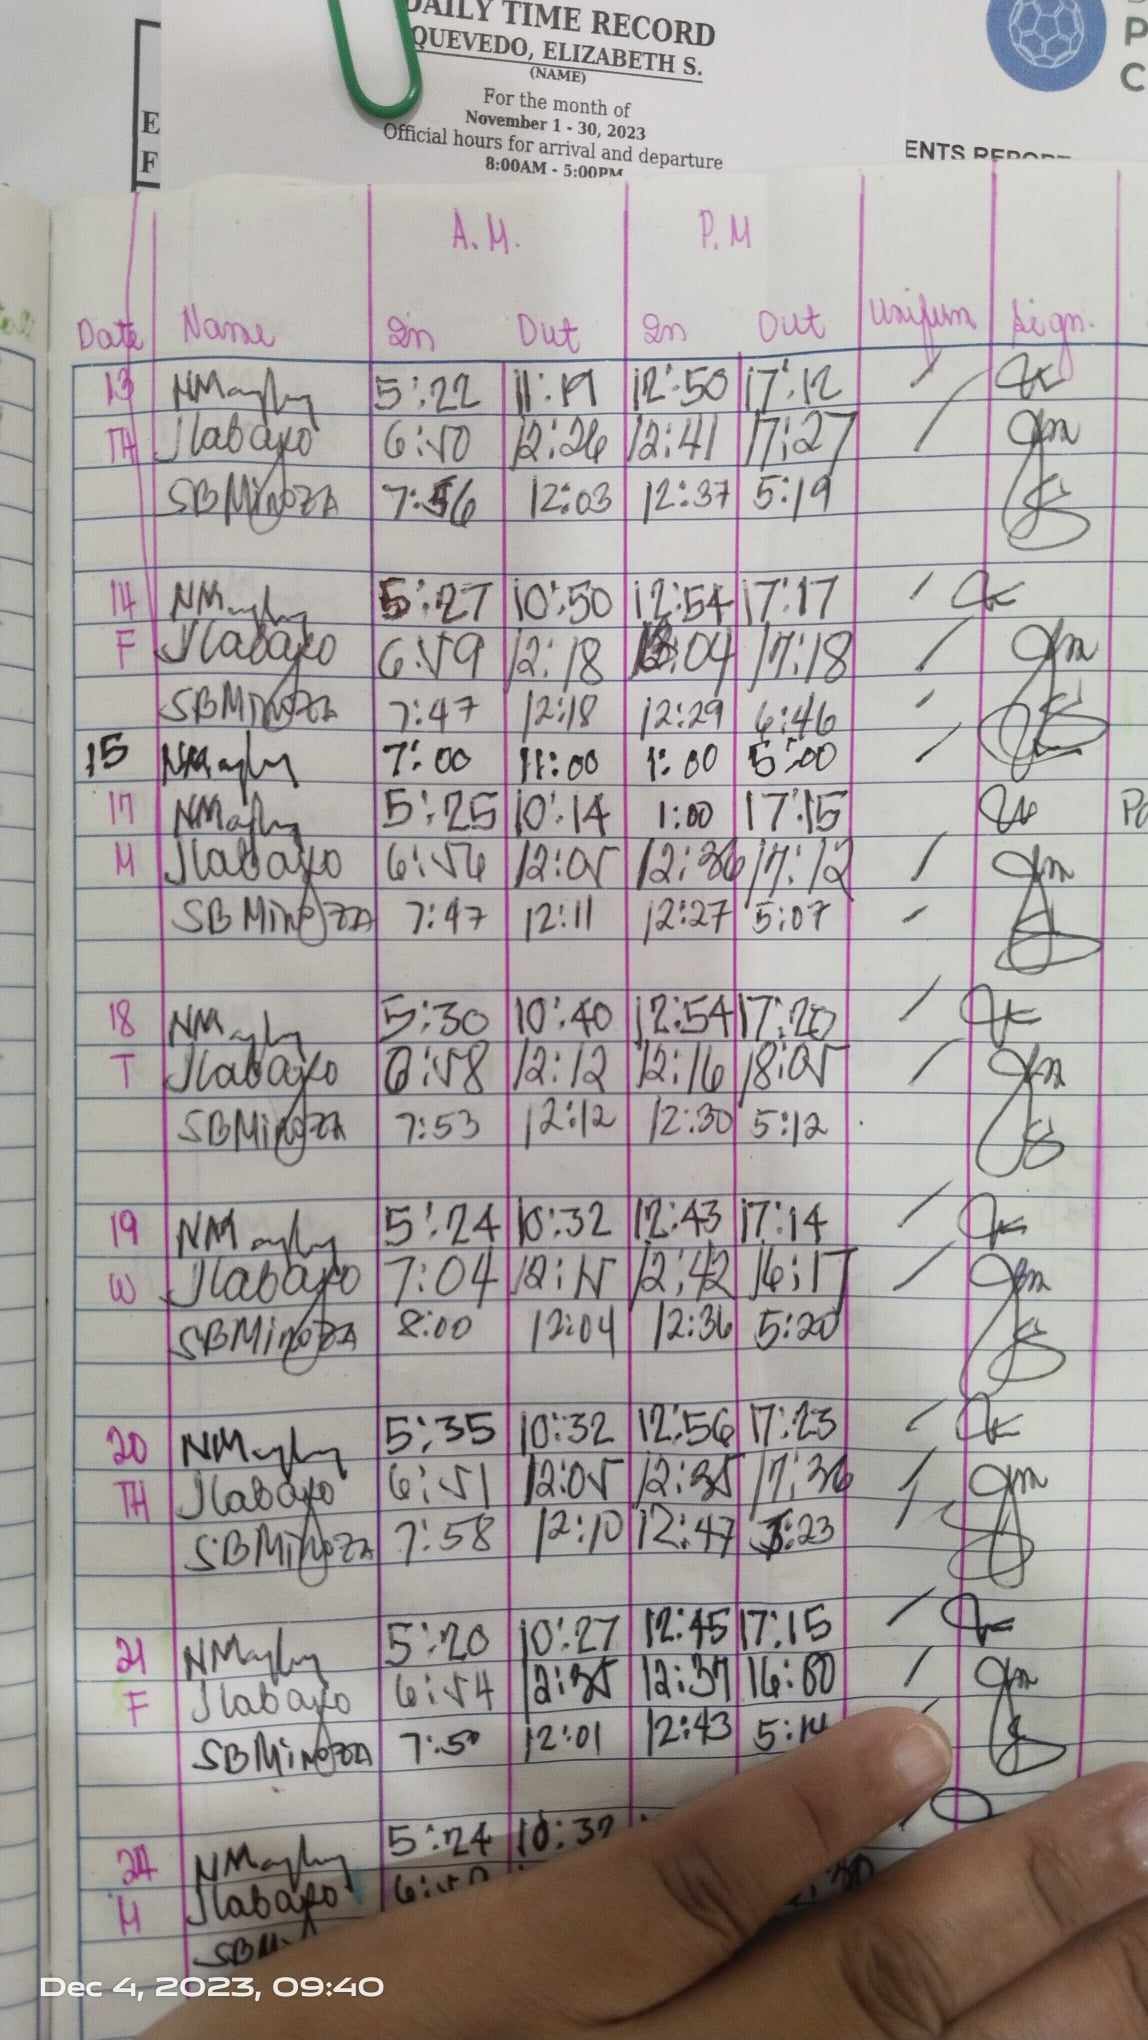 DAILY TIME RECORD
QUEVEDO, ELIZABETH S.
(NAME)
For the month of
November 1 - 30, 2023
Official hours for arrival and departure
8:00AM - 5:00PM
P
C
E
F
ENTS REPORT
A.M. P.M
Date Name In Out In Out Uniform Sign.
13 5:22 11:19 12:50 17:12
TH Jlabayo 6:50 12:26 12:41 17:27
SBMinoza 7:56 12:03 12:37 5:19
14 5:27 10:50 12:54 17:17
F Jlabayo 6:59 12:18 17:18
SBMinoza 7:47 12:18 12:29 6:46
15 7:00 11:00 1:00 5:00
17 5:25 10:14 1:00 17:15
M Jlabayo 6:56 12:05 12:36 17:12
SBMinoza 7:47 12:11 12:27 5:07
18 5:30 10:40 12:54 17:20
T Jlabayo 6:58 12:12 12:16 18:05
SBMinoza 7:53 12:12 12:30 5:12
19 5:24 10:32 12:43 17:14
W Jlabayo 7:04 12:15 12:42 16:17
SBMinoza 8:00 12:04 12:36 5:20
20 5:35 10:32 12:56 17:23
TH Jlabayo 6:51 12:05 12:35 17:36
SBMinoza 7:58 12:10 12:47 5:23
21 5:20 10:27 12:45 17:15
F Jlabayo 6:54 12:35 12:37
SBMinoza 7:50 12:01 12:43
24 5:24 10:32
M Jlabayo
Dec 4, 2023, 09:40